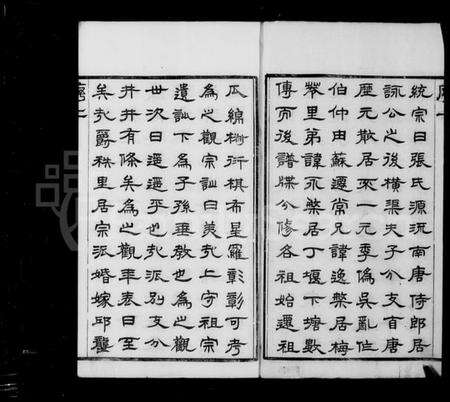 統宗曰張氏源流南唐侍郎居
詠公之後橫渠夫子分支自唐
歷元散居不一元季偽吳亂作
伯仲由蘇遷常兄諱逸槩居梅
岑里弟諱永槩居丁堰下塘數
傳而後譜牒分修各祖始遷祖
瓜綿椒衍棋布星羅彰彰可考
為之觀宗訓曰美哉上守祖宗
遺訓下為子孫垂教也為之觀
世次曰遞遞乎也哉派別支分
井井有條矣為之觀年表曰至
矣哉爵秩里居宗派婚嫁邱壟
序二